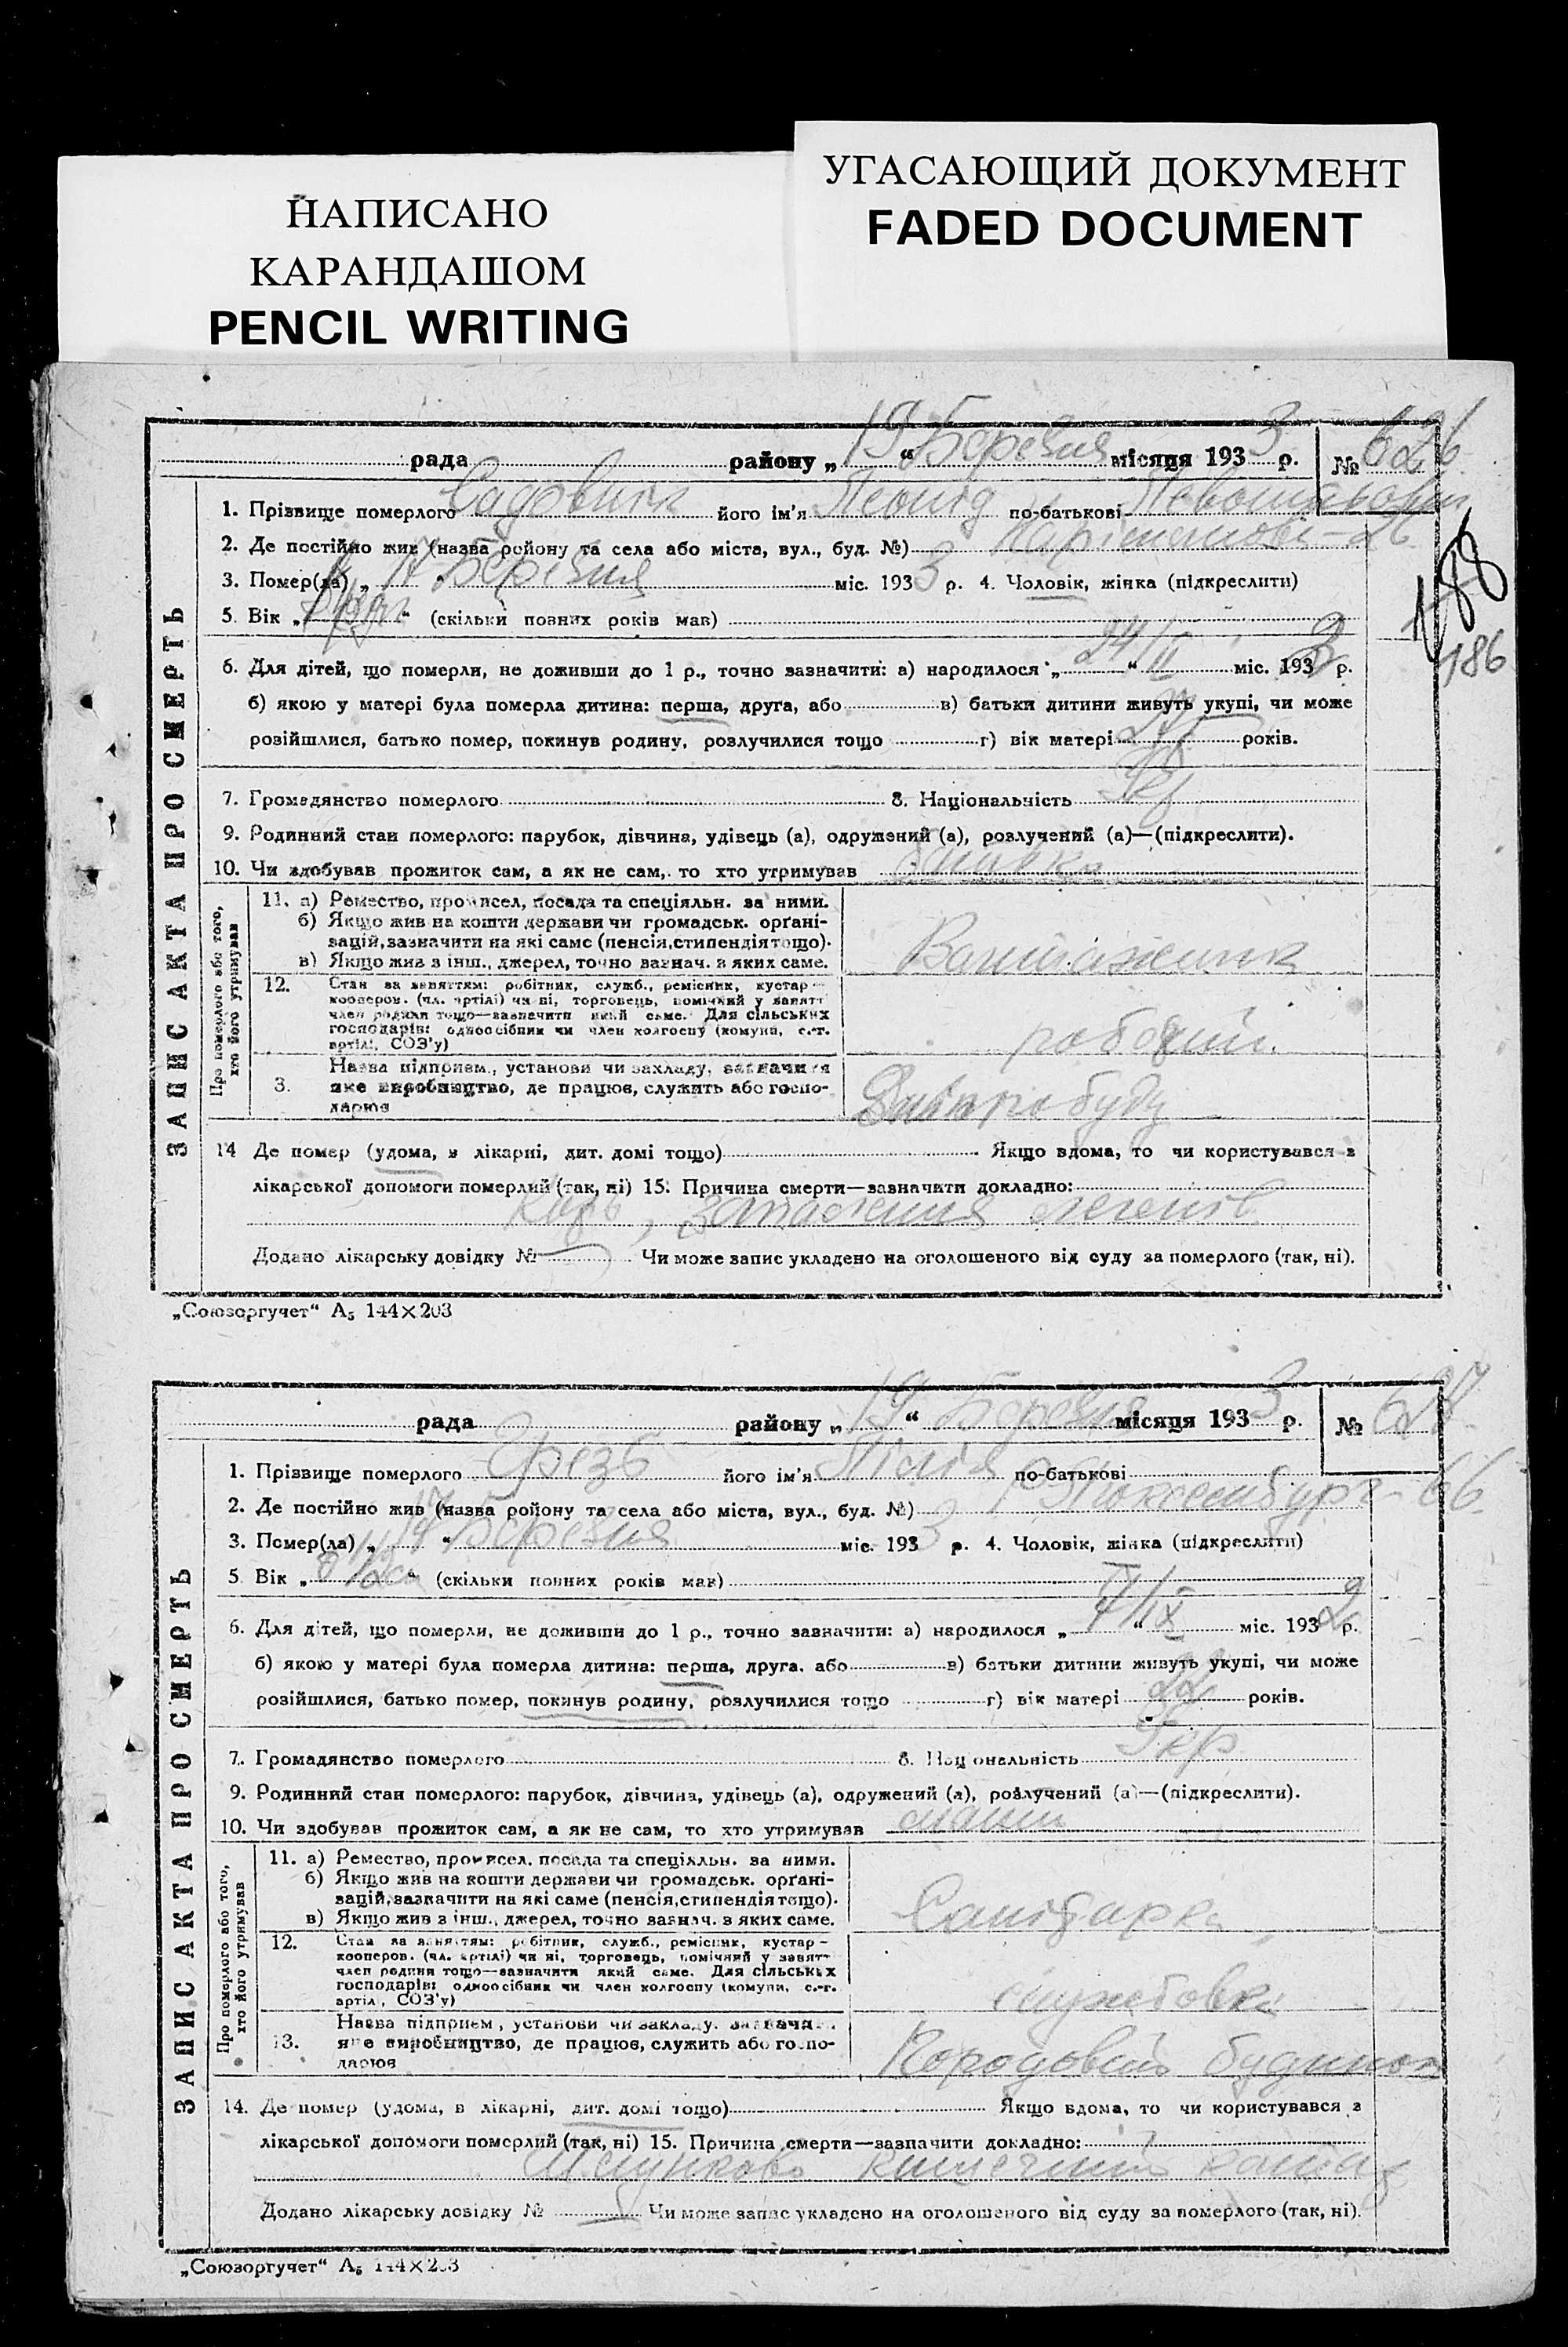 НАПИСАНО
КАРАНДАШОМ
PENCIL WRITING
УГАСАЮЩИЙ ДОКУМЕНТ
FADED DOCUMENT
рада району „ 19 “ Березня місяця 1933 р. № 626
ЗАПИС АКТА ПРО СМЕРТЬ
1. Прізвище померлого Садовник його ім'я Леонід по-батькові
2. Де постійно жив (назва району та села або міста, вул., буд. №)
3. Помер(ла) „ 17 “ Березня міс. 1933 р. 4. Чоловік, жінка (підкреслити)
188
5. Вік „ “ (скільки повних років мав)
186
6. Для дітей, що померли, не доживши до 1 р., точно зазначити: а) народилося „ 24/II “ міс. 1933 р.
б) якою у матері була померла дитина: перша, друга, або в) батьки дитини живуть укупі, чи може
розійшлися, батько помер, покинув родину, розлучилися тощо г) вік матері років.
7. Громадянство померлого 8. Національність
9. Родинний стан померлого: парубок, дівчина, удівець (а), одружений (а), розлучений (а)—(підкреслити).
10. Чи здобував прожиток сам, а як не сам, то хто утримував батько
Про померлого або того, хто його утримував
11. а) Ремество, промисел, посада та спеціяльн. за ними.
б) Якщо жив на кошти держави чи громадськ. орґані-
зацій, зазначити на які саме (пенсія, стипендія тощо).
в) Якщо жив з інш., джерел, точно зазнач. з яких саме.
Вантажник
12. Стан за заняттям: робітник, служб., ремісник, кустар—
кооперов. (чл. артілі) чи ні, торговець, помічний у занятт
член родини тощо—зазначити який саме. Для сільських
господарів: одноосібник чи член колгоспу (комуни, с.-г.
артілі, СОЗ'у)
робочий.
3. Назва підприєм., установи чи закладу, зазначити
яке виробництво, де працює, служить або госпо-
дарює
Дніпробуд
14 Де помер (удома, в лікарні, дит. домі тощо) Якщо вдома, то чи користувався з
лікарської допомоги померлий (так, ні) 15. Причина смерти—зазначити докладно:
Кор, запалення легенів
Додано лікарську довідку № Чи може запис укладено на оголошеного від суду за померлого (так, ні).
„Союзоргучет“ А₅ 144×203
рада району „ 19 “ Березня місяця 1933 р. № 627
ЗАПИС АКТА ПРО СМЕРТЬ
1. Прізвище померлого його ім'я Лілія по-батькові
2. Де постійно жив (назва району та села або міста, вул., буд. №) Р. Люксембург-66
3. Помер(ла) „ 17 “ Березня міс. 1933 р. 4. Чоловік, жінка (підкреслити)
5. Вік „ “ (скільки повних років мав)
6. Для дітей, що померли, не доживши до 1 р., точно зазначити: а) народилося „ “ IX міс. 1932 р.
б) якою у матері була померла дитина: перша, друга, або в) батьки дитини живуть укупі, чи може
розійшлися, батько помер, покинув родину, розлучилися тощо г) вік матері 22 років.
7. Громадянство померлого 8. Національність Укр
9. Родинний стан померлого: парубок, дівчина, удівець (а), одружений (а), розлучений (а)—(підкреслити).
10. Чи здобував прожиток сам, а як не сам, то хто утримував мати
Про померлого або того, хто його утримував
11. а) Ремество, промисел, посада та спеціяльн. за ними.
б) Якщо жив на кошти держави чи громадськ. орґані-
зацій, зазначити на які саме (пенсія, стипендія тощо).
в) Якщо жив з інш., джерел, точно зазнач. з яких саме.
Санітарка
12. Стан за заняттям: робітник, служб., ремісник, кустар—
кооперов. (чл. артілі) чи ні, торговець, помічний у занятт
член родини тощо—зазначити який саме. Для сільських
господарів: одноосібник чи член колгоспу (комуни, с.-г.
артілі, СОЗ'у)
службовка
13. Назва підприєм., установи чи закладу, зазнача
яке виробництво, де працює, служить або госпо-
дарює
будинок
14. Де помер (удома, в лікарні, дит. домі тощо) Якщо вдома, то чи користувався з
лікарської допомоги померлий (так, ні) 15. Причина смерти—зазначити докладно:
Шлунково катар
Додано лікарську довідку № Чи може запис укладено на оголошеного від суду за померлого (так, ні).
„Союзоргучет“ А₅ 144×203